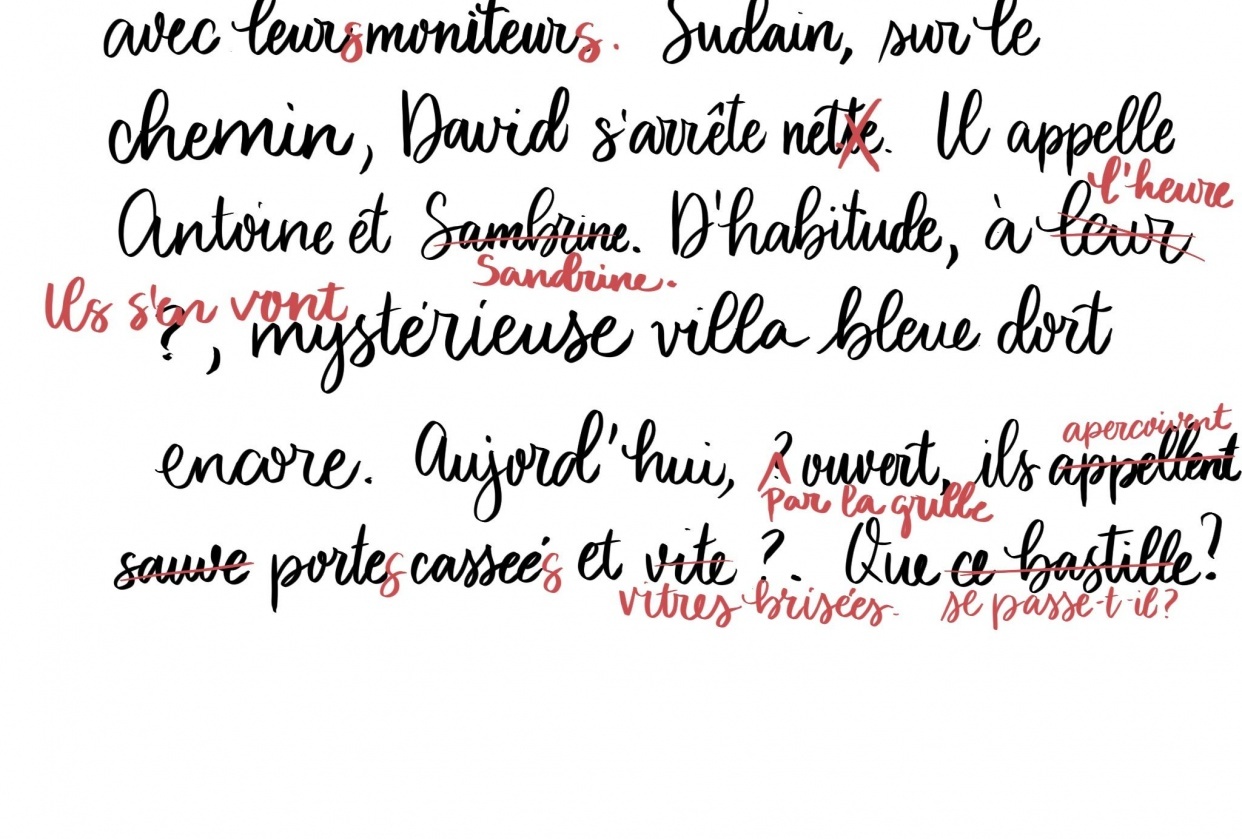 avec leurs moniteurs. Sudain, sur le
chemin, David s'arrête nette. Il appelle
l'heure
Antoine et Sambrine. D'habitude, à leur
Sandrine.
Ils s'en vont
?, mystérieuse villa bleue dort
encore. Aujord'hui, ? ouvert, ils appellent
apercoivent
par la grille
sauve portes casseés et vite ?. Que ce bastille?
vitres brisées. se passe-t-il?